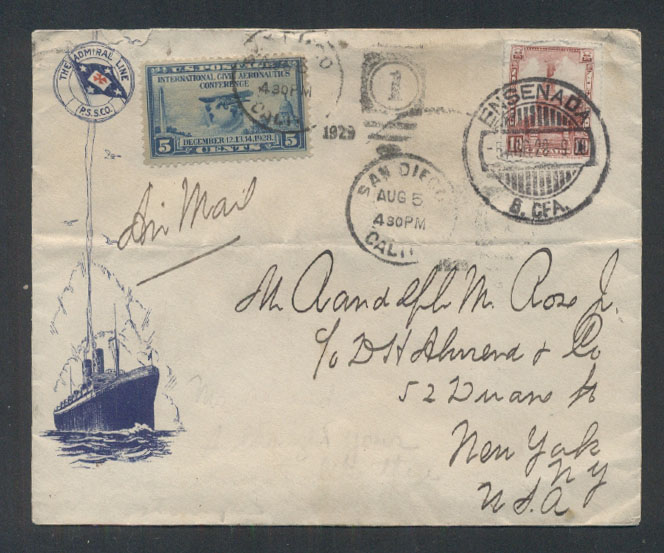 THE ADMIRAL LINE
P.S.S.CO.
U.S. POSTAGE
INTERNATIONAL CIVIL AERONAUTICS
CONFERENCE
DECEMBER 12.13.14.1928.
5 CENTS 5
430PM
CALIF
1929
1
ENSENADA,
B. CFA.
10
SAN DIEGO
AUG 5
430PM
CALIF
Air Mail
Mr Randolph M. Rose Jr.
c/o D H Ahrend & Co
52 Duane St
New York
NY
USA